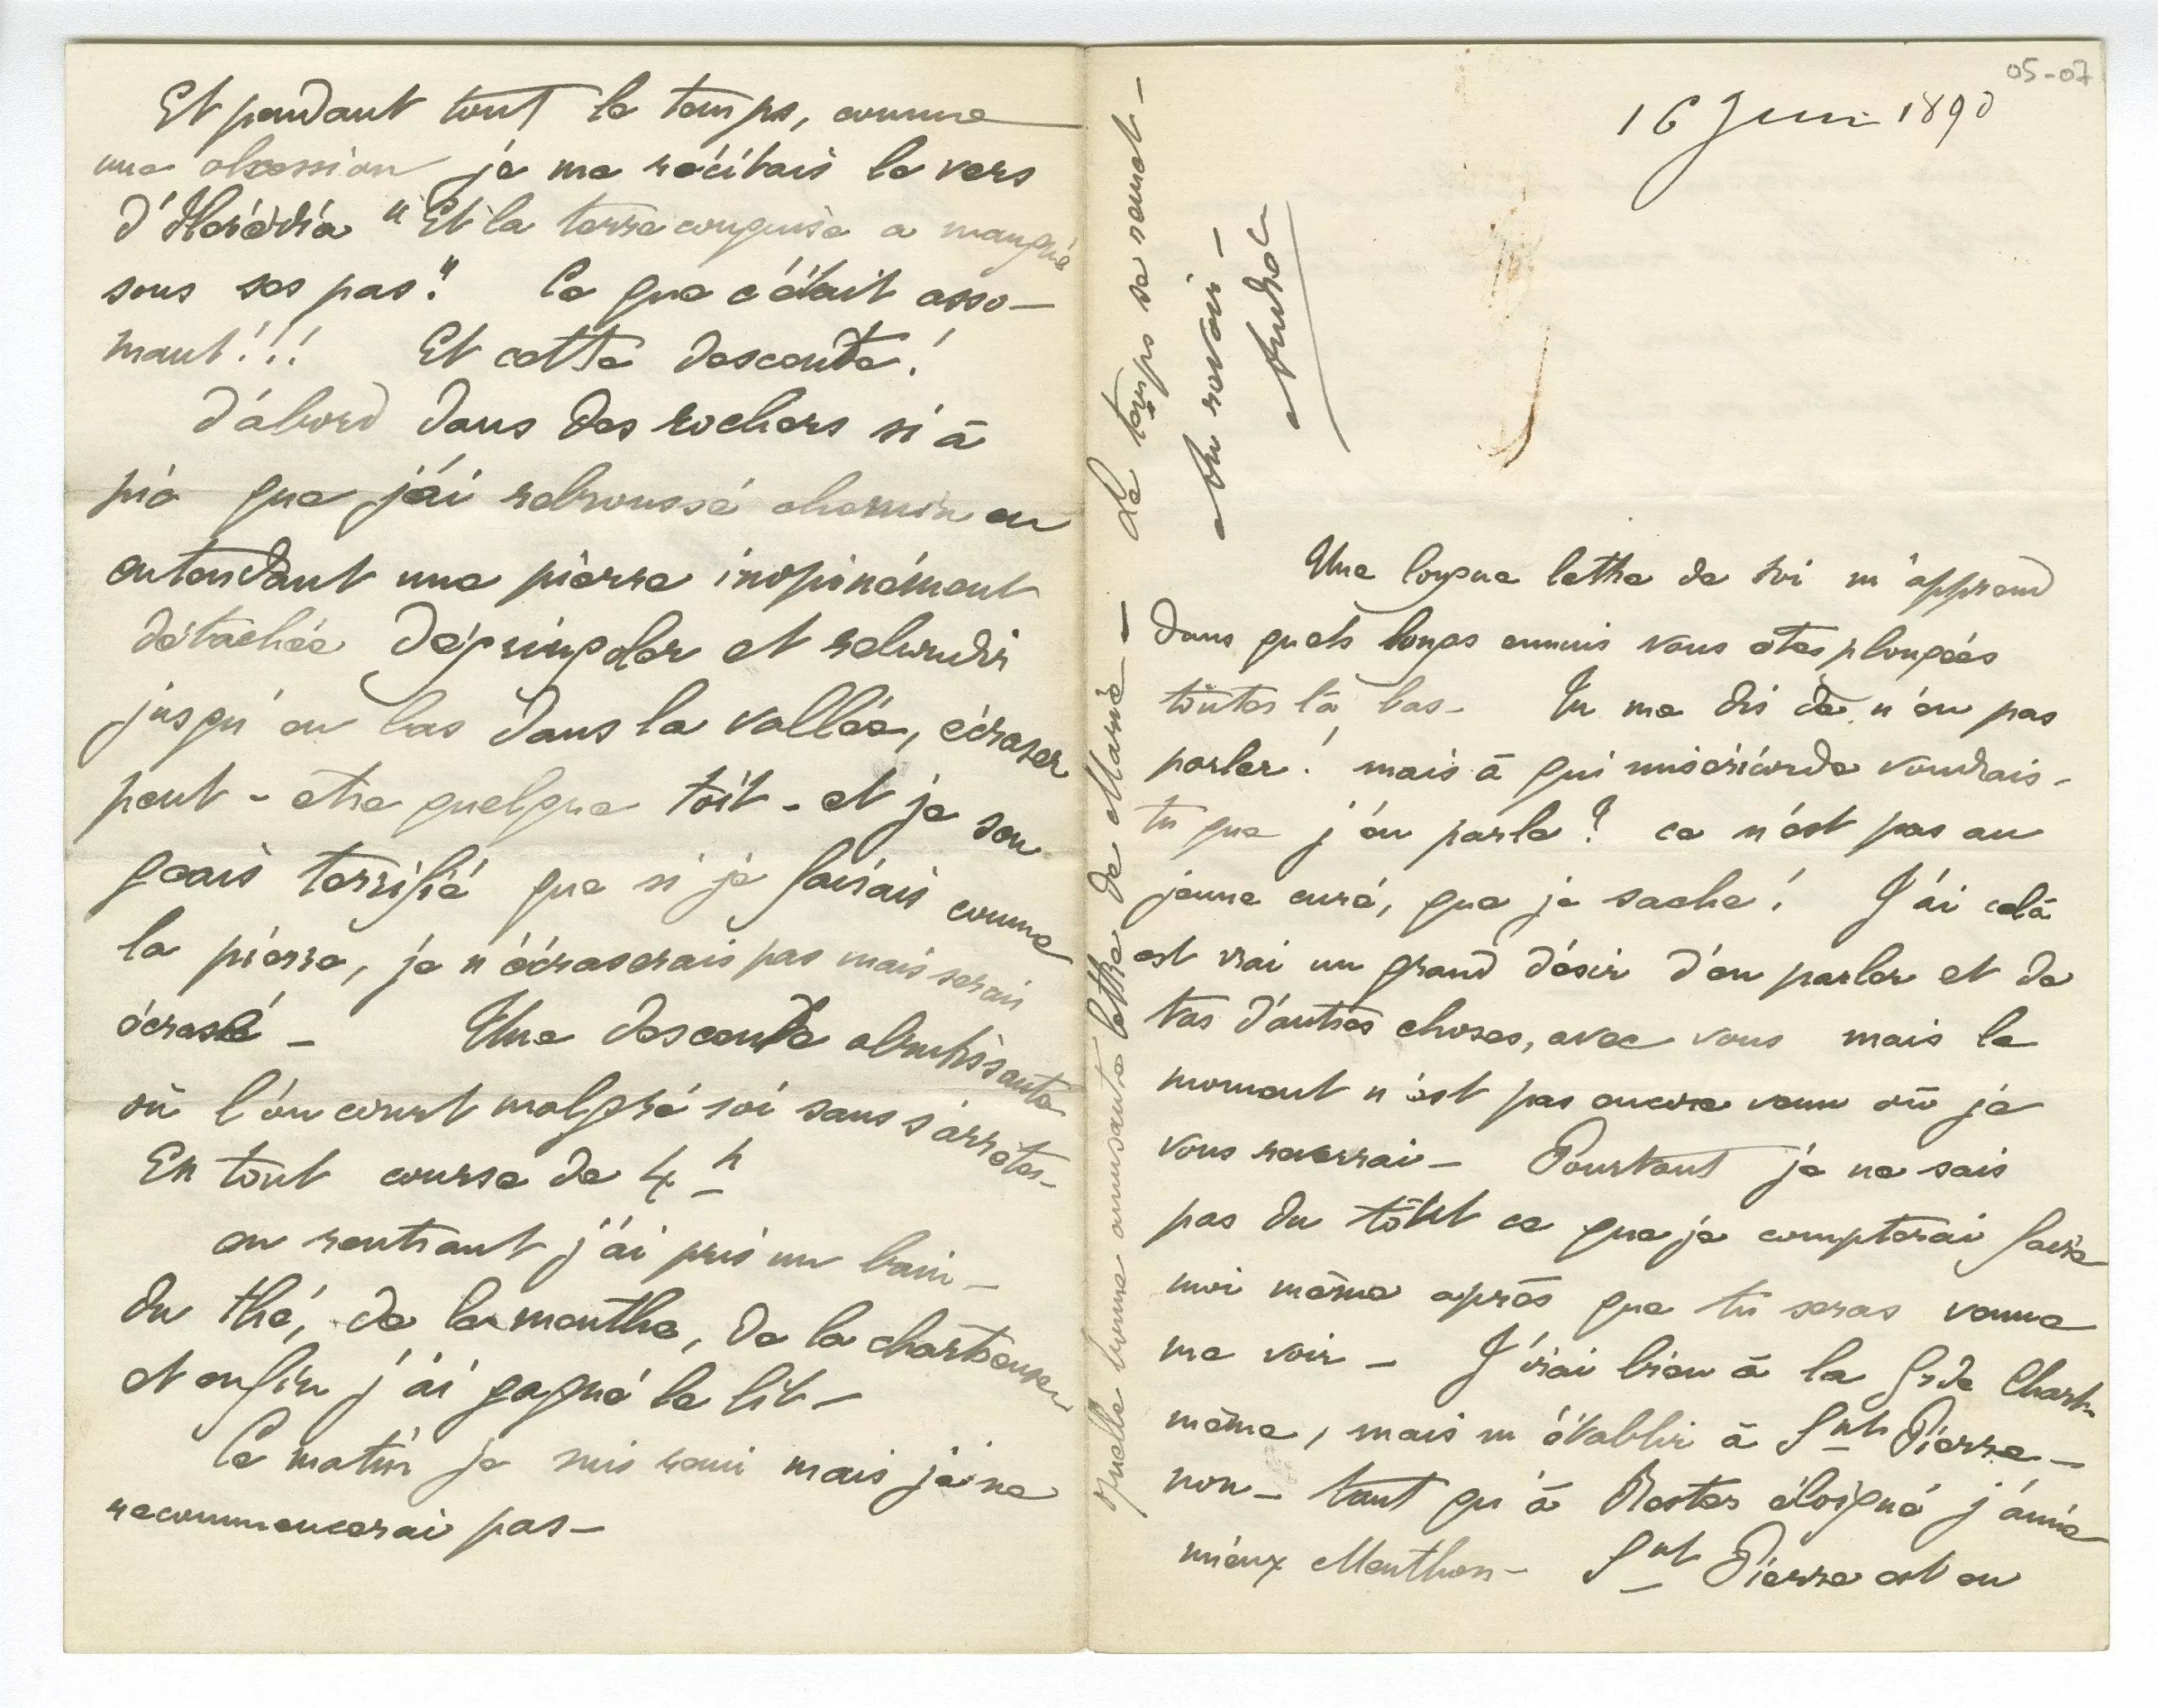 05-07
16 Juin 1890
Une longue lettre de toi m'apprend
dans quels longs ennuis vous etes plongées
toutes là bas – Tu me dis de n'en pas
parler! mais à qui miséricorde voudrais-
tu que j'en parle? ce n'est pas au
jeune curé, que je sache! J'ai cela
est vrai un grand désir d'en parler et de
tas d'autres choses, avec vous mais le
moment n'est pas encore venu où je
vous reverrai – Pourtant je ne sais
pas du tout ce que je compterai faire
moi même après que tu seras venue
me voir – J'irai bien à la Grde Chart.
même, mais m'établir à Snt Pierre –
non – tant qu'à Rester éloigné j'aime
mieux Menthon – Snt Pierre est en
Et pendant tout le temps, comme
une obsession je me récitais le vers
d'Hérédia "Et la terre conquise a manqué
sous ses pas." Ce que c'était asso-
mant!!! Et cette descente!
D'abord dans des rochers si à
pic que j'ai rebroussé chemin en
entendant une pierre inopinément
détachée dégringoler et rebondir
jusqu'en bas dans la vallée, écraser
peut-etre quelque toit – et je son
geais terrifié que si je faisais comme
la pierre, je n'écraserais pas mais serais
écrasé – Une descente abrutissante
où l'on court malgré soi sans s'arrêter –
En tout course de 4 h
en rentrant j'ai pris un bain –
du thé, de la menthe, de la chartreuse
et enfin j'ai gagné le lit –
Ce matin je suis remi mais je ne
recommencerai pas –
Quelle bonne amusante lettre de Marie – Le temps se remet –
Au revoir –
André